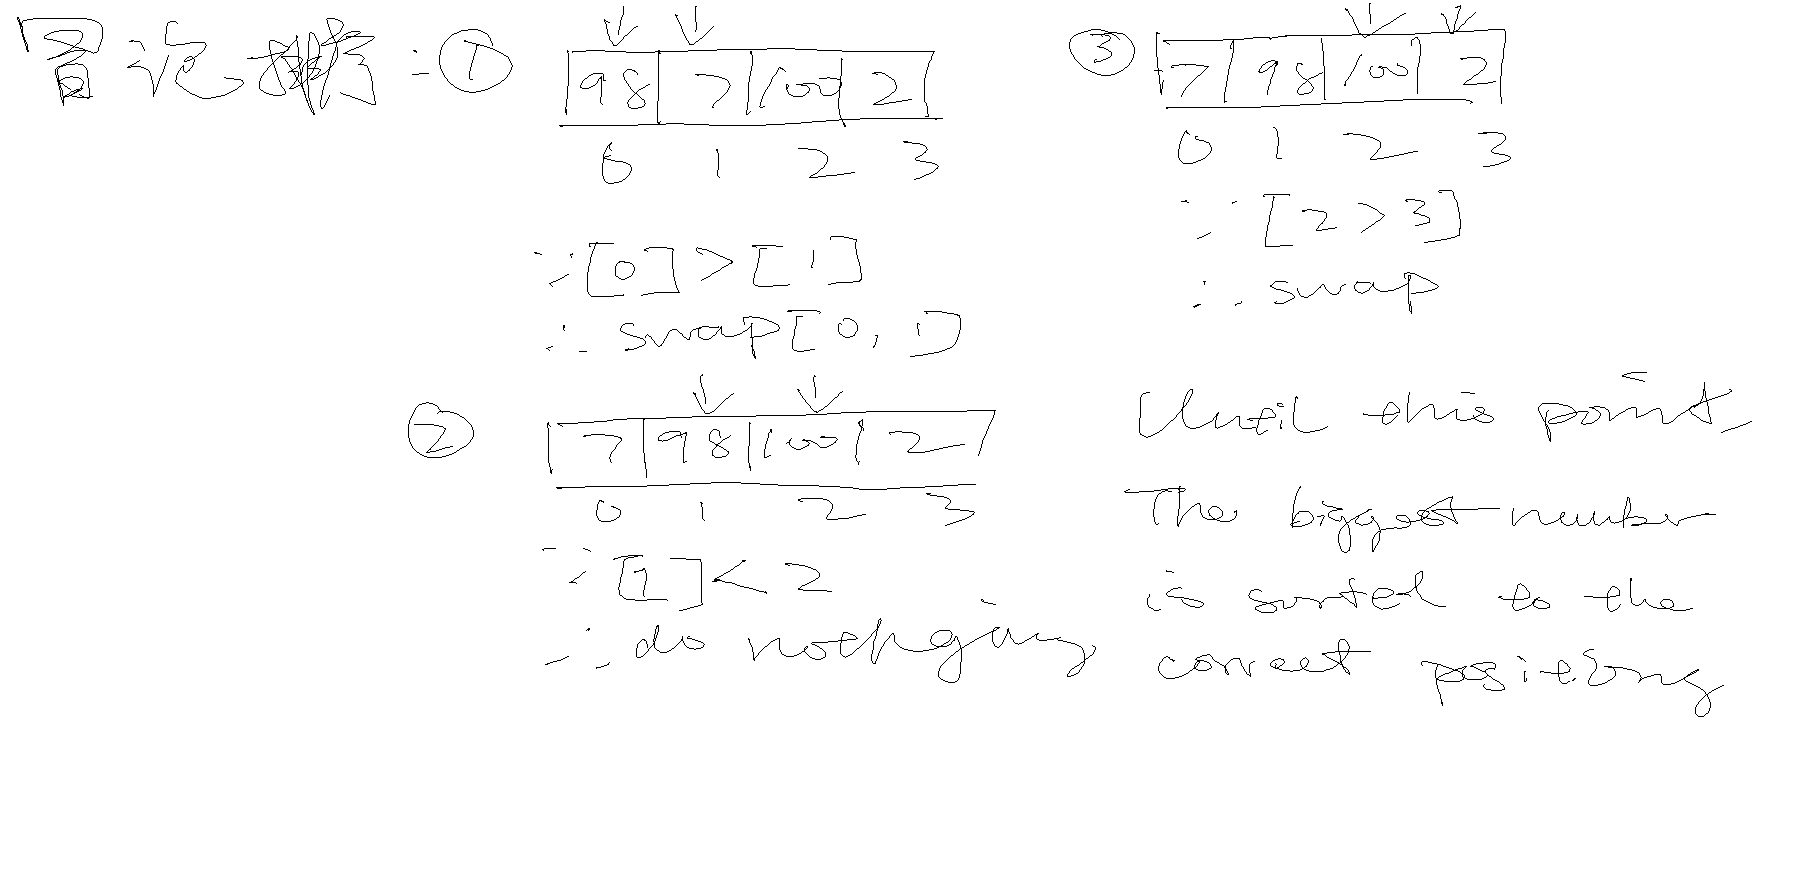 冒泡排序：①
98 7 100 2
0 1 2 3
∵[0]>[1]
∴ swap[0, 1]
②
7 98 100 2
0 1 2 3
∵ [1]<2
∴ do nothging
③
7 98 100 2
0 1 2 3
∵ [2>3]
∴ swap
Until this point,
The biggest number
is sorted to the
correct positiong